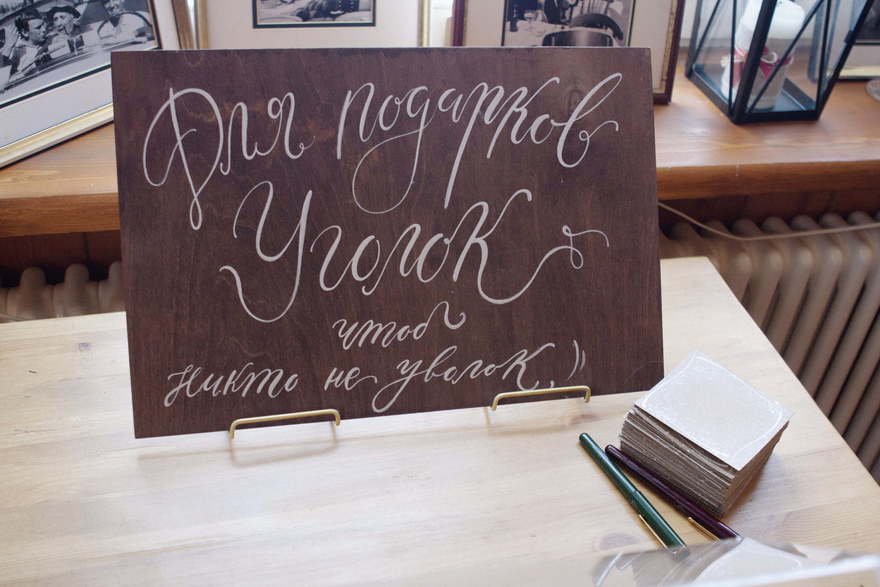 Для подарков
Уголок
чтоб
никто не уволок,))